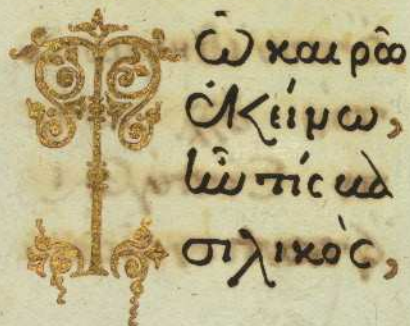 Τῶ καιρῶ
ἐκείνω,
ἦν τίς βα
σιλικὸς,